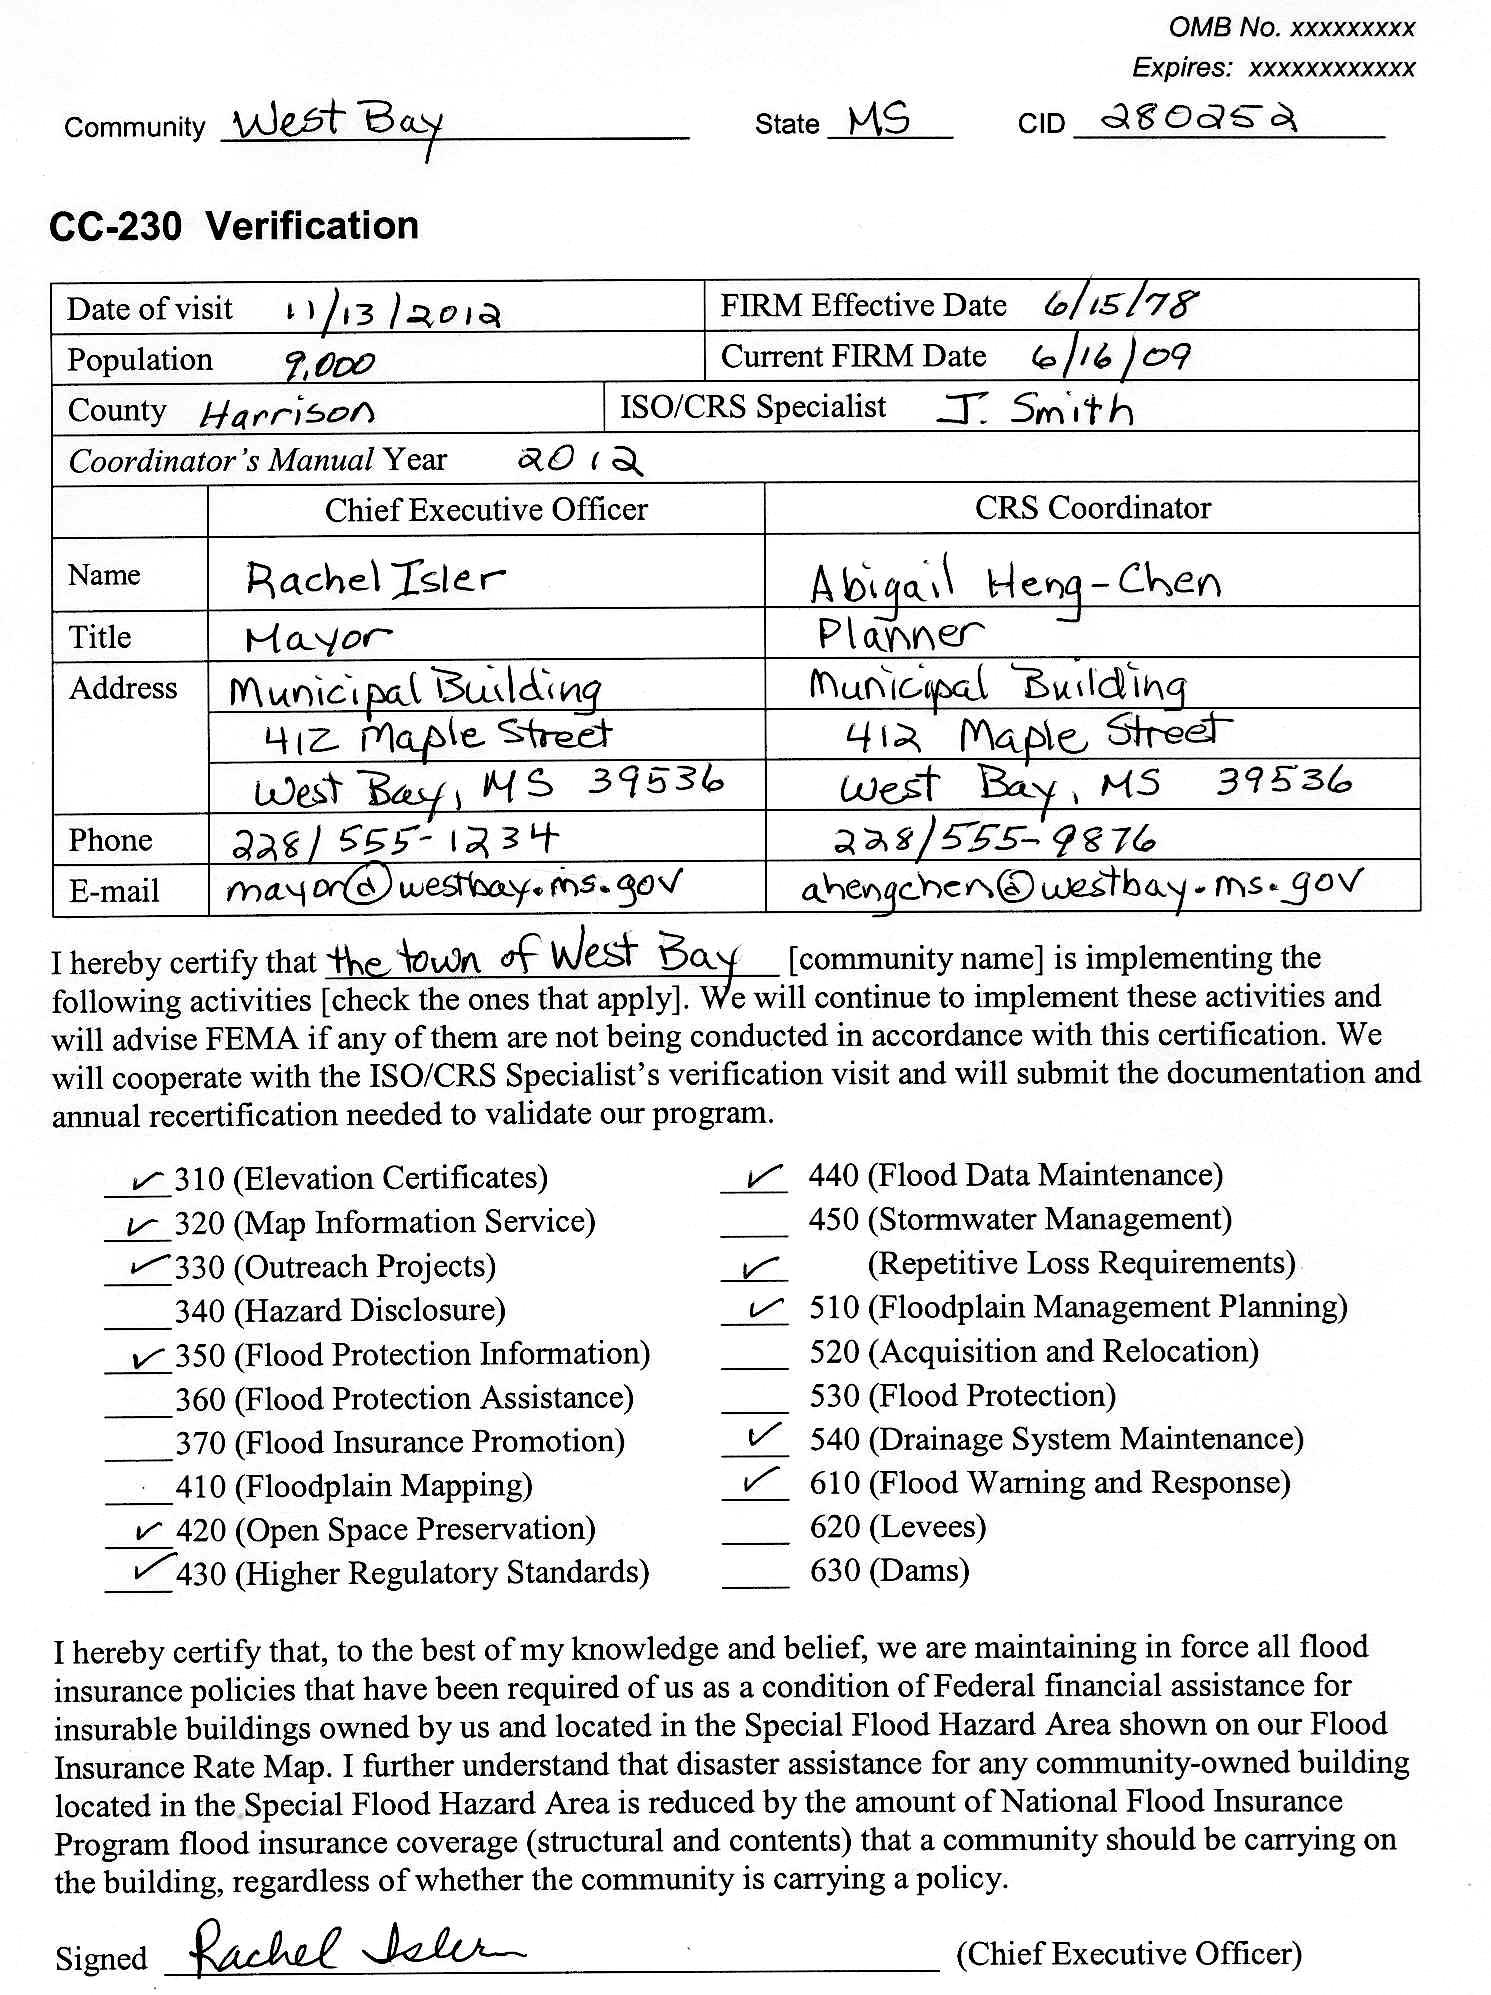 OMB No. xxxxxxxxx
Expires: xxxxxxxxxxxx
Community West Bay State MS CID 280252
CC-230 Verification
Date of visit 11/13/2012 FIRM Effective Date 6/15/78
Population 9,000 Current FIRM Date 6/16/09
County Harrison ISO/CRS Specialist J. Smith
Coordinator's Manual Year 2012
Chief Executive Officer CRS Coordinator
Name Rachel Isler Abigail Heng-Chen
Title Mayor Planner
Address Municipal Building Municipal Building
412 Maple Street 412 Maple Street
West Bay, MS 39536 West Bay, MS 39536
Phone 228/555-1234 228/555-9876
E-mail mayor@westbay.ms.gov ahengchen@westbay.ms.gov
I hereby certify that the town of West Bay [community name] is implementing the
following activities [check the ones that apply]. We will continue to implement these activities and
will advise FEMA if any of them are not being conducted in accordance with this certification. We
will cooperate with the ISO/CRS Specialist's verification visit and will submit the documentation and
annual recertification needed to validate our program.
✓ 310 (Elevation Certificates) ✓ 440 (Flood Data Maintenance)
✓ 320 (Map Information Service) 450 (Stormwater Management)
✓ 330 (Outreach Projects) ✓ (Repetitive Loss Requirements)
340 (Hazard Disclosure) ✓ 510 (Floodplain Management Planning)
✓ 350 (Flood Protection Information) 520 (Acquisition and Relocation)
360 (Flood Protection Assistance) 530 (Flood Protection)
370 (Flood Insurance Promotion) ✓ 540 (Drainage System Maintenance)
410 (Floodplain Mapping) ✓ 610 (Flood Warning and Response)
✓ 420 (Open Space Preservation) 620 (Levees)
✓ 430 (Higher Regulatory Standards) 630 (Dams)
I hereby certify that, to the best of my knowledge and belief, we are maintaining in force all flood
insurance policies that have been required of us as a condition of Federal financial assistance for
insurable buildings owned by us and located in the Special Flood Hazard Area shown on our Flood
Insurance Rate Map. I further understand that disaster assistance for any community-owned building
located in the Special Flood Hazard Area is reduced by the amount of National Flood Insurance
Program flood insurance coverage (structural and contents) that a community should be carrying on
the building, regardless of whether the community is carrying a policy.
Signed Rachel Isler (Chief Executive Officer)